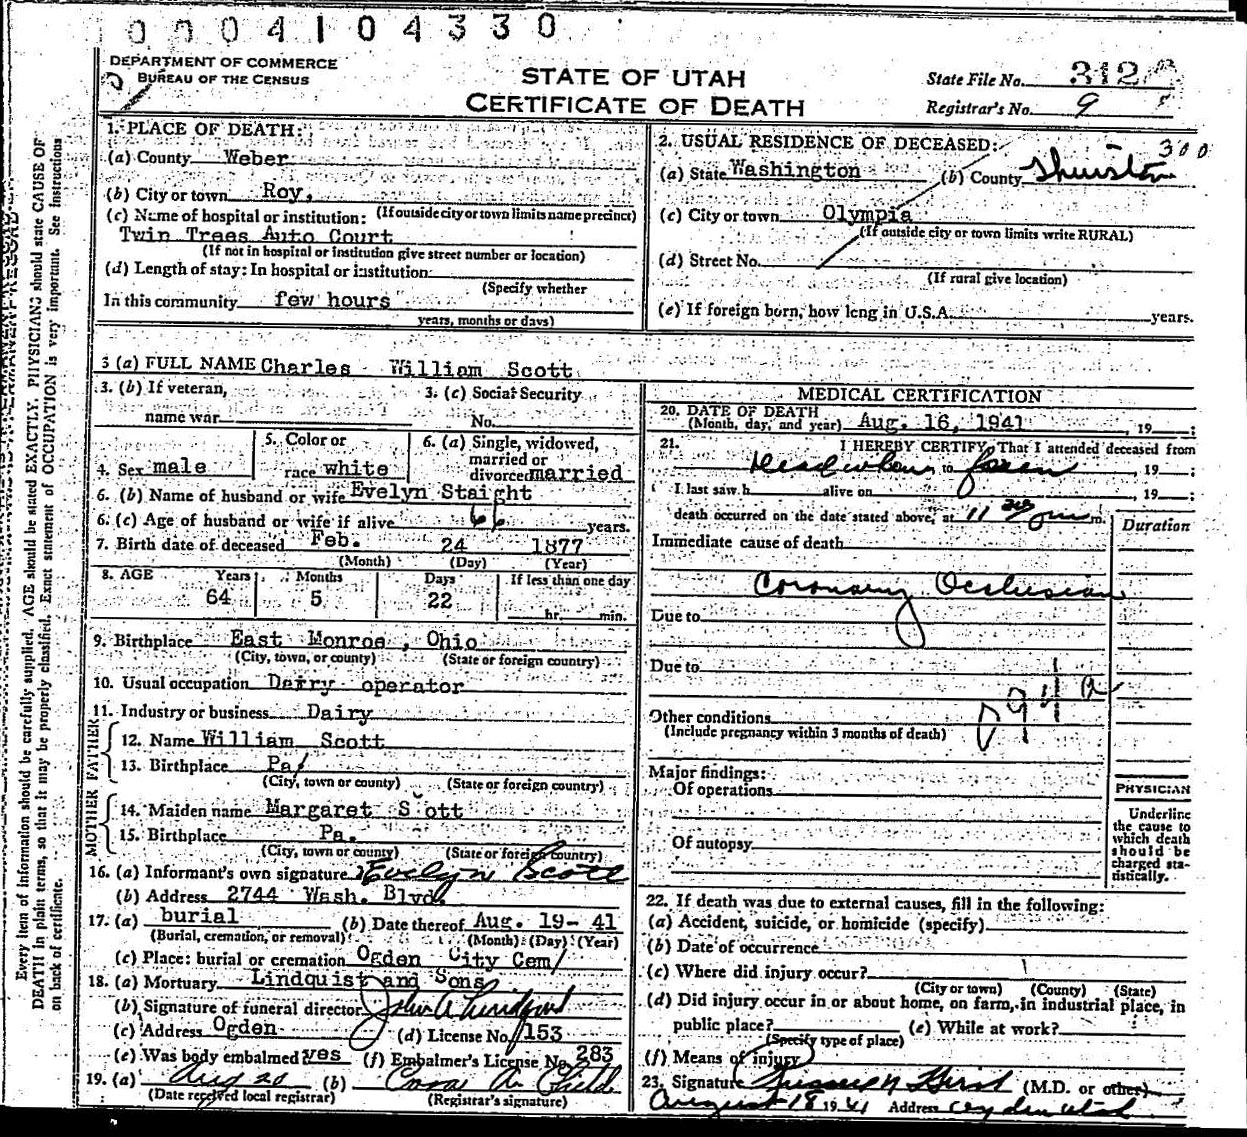 0004104330
DEPARTMENT OF COMMERCE
BUREAU OF THE CENSUS
STATE OF UTAH
CERTIFICATE OF DEATH
State File No. 312
Registrar's No. 9
1. PLACE OF DEATH:
(a) County Weber
(b) City or town Roy,
(If outside city or town limits name precinct)
(c) Name of hospital or institution:
Twin Trees Auto Court
(If not in hospital or institution give street number or location)
(d) Length of stay: In hospital or institution
(Specify whether
In this community few hours
years, months or days)
2. USUAL RESIDENCE OF DECEASED:
300
(a) State Washington (b) County Thurston
(c) City or town Olympia
(If outside city or town limits write RURAL)
(d) Street No.
(If rural give location)
(e) If foreign born, how long in U.S.A. years.
3 (a) FULL NAME Charles William Scott
3. (b) If veteran,
name war
3. (c) Social Security
No.
4. Sex male
5. Color or
race white
6. (a) Single, widowed,
married or
divorced married
6. (b) Name of husband or wife Evelyn Staight
6. (c) Age of husband or wife if alive 66 years.
7. Birth date of deceased Feb. 24 1877
(Month) (Day) (Year)
8. AGE Years Months Days If less than one day
64 5 22 hr. min.
9. Birthplace East Monroe, Ohio
(City, town, or county) (State or foreign country)
10. Usual occupation Dairy operator
11. Industry or business Dairy
FATHER
12. Name William Scott
13. Birthplace Pa/
(City, town or county) (State or foreign country)
MOTHER
14. Maiden name Margaret Scott
15. Birthplace Pa.
(City, town or county) (State or foreign country)
16. (a) Informant's own signature Evelyn Scott
(b) Address 2744 Wash. Blvd.
17. (a) burial (b) Date thereof Aug. 19- 41
(Burial, cremation, or removal) (Month) (Day) (Year)
(c) Place: burial or cremation Ogden City Cem/
18. (a) Mortuary Lindquist and Sons
(b) Signature of funeral director John A Lindquist
(c) Address Ogden (d) License No. 153
(e) Was body embalmed yes (f) Embalmer's License No. 283
19. (a) Aug 20 (b)
(Date received local registrar) (Registrar's signature)
MEDICAL CERTIFICATION
20. DATE OF DEATH
(Month, day, and year) Aug. 16, 1941, 19 ;
21. I HEREBY CERTIFY, That I attended deceased from
Dead when to seen, 19 ;
I last saw h alive on , 19 ;
death occurred on the date stated above, at 11 30 pm m.
Duration
Immediate cause of death
Coronary Occlusion
Due to
Due to
094a
Other conditions
(Include pregnancy within 3 months of death)
Major findings:
Of operations
Of autopsy
PHYSICIAN
Underline
the cause to
which death
should be
charged sta-
tistically.
22. If death was due to external causes, fill in the following:
(a) Accident, suicide, or homicide (specify)
(b) Date of occurrence
(c) Where did injury occur?
(City or town) (County) (State)
(d) Did injury occur in or about home, on farm, in industrial place, in
public place? (e) While at work?
(Specify type of place)
(f) Means of injury
23. Signature (M.D. or other)
August 18 1941 Address Ogden Utah
Every item of information should be carefully supplied. AGE should be stated EXACTLY. PHYSICIANS should state CAUSE OF
DEATH in plain terms, so that it may be properly classified. Exact statement of OCCUPATION is very important. See Instructions
on back of certificate.